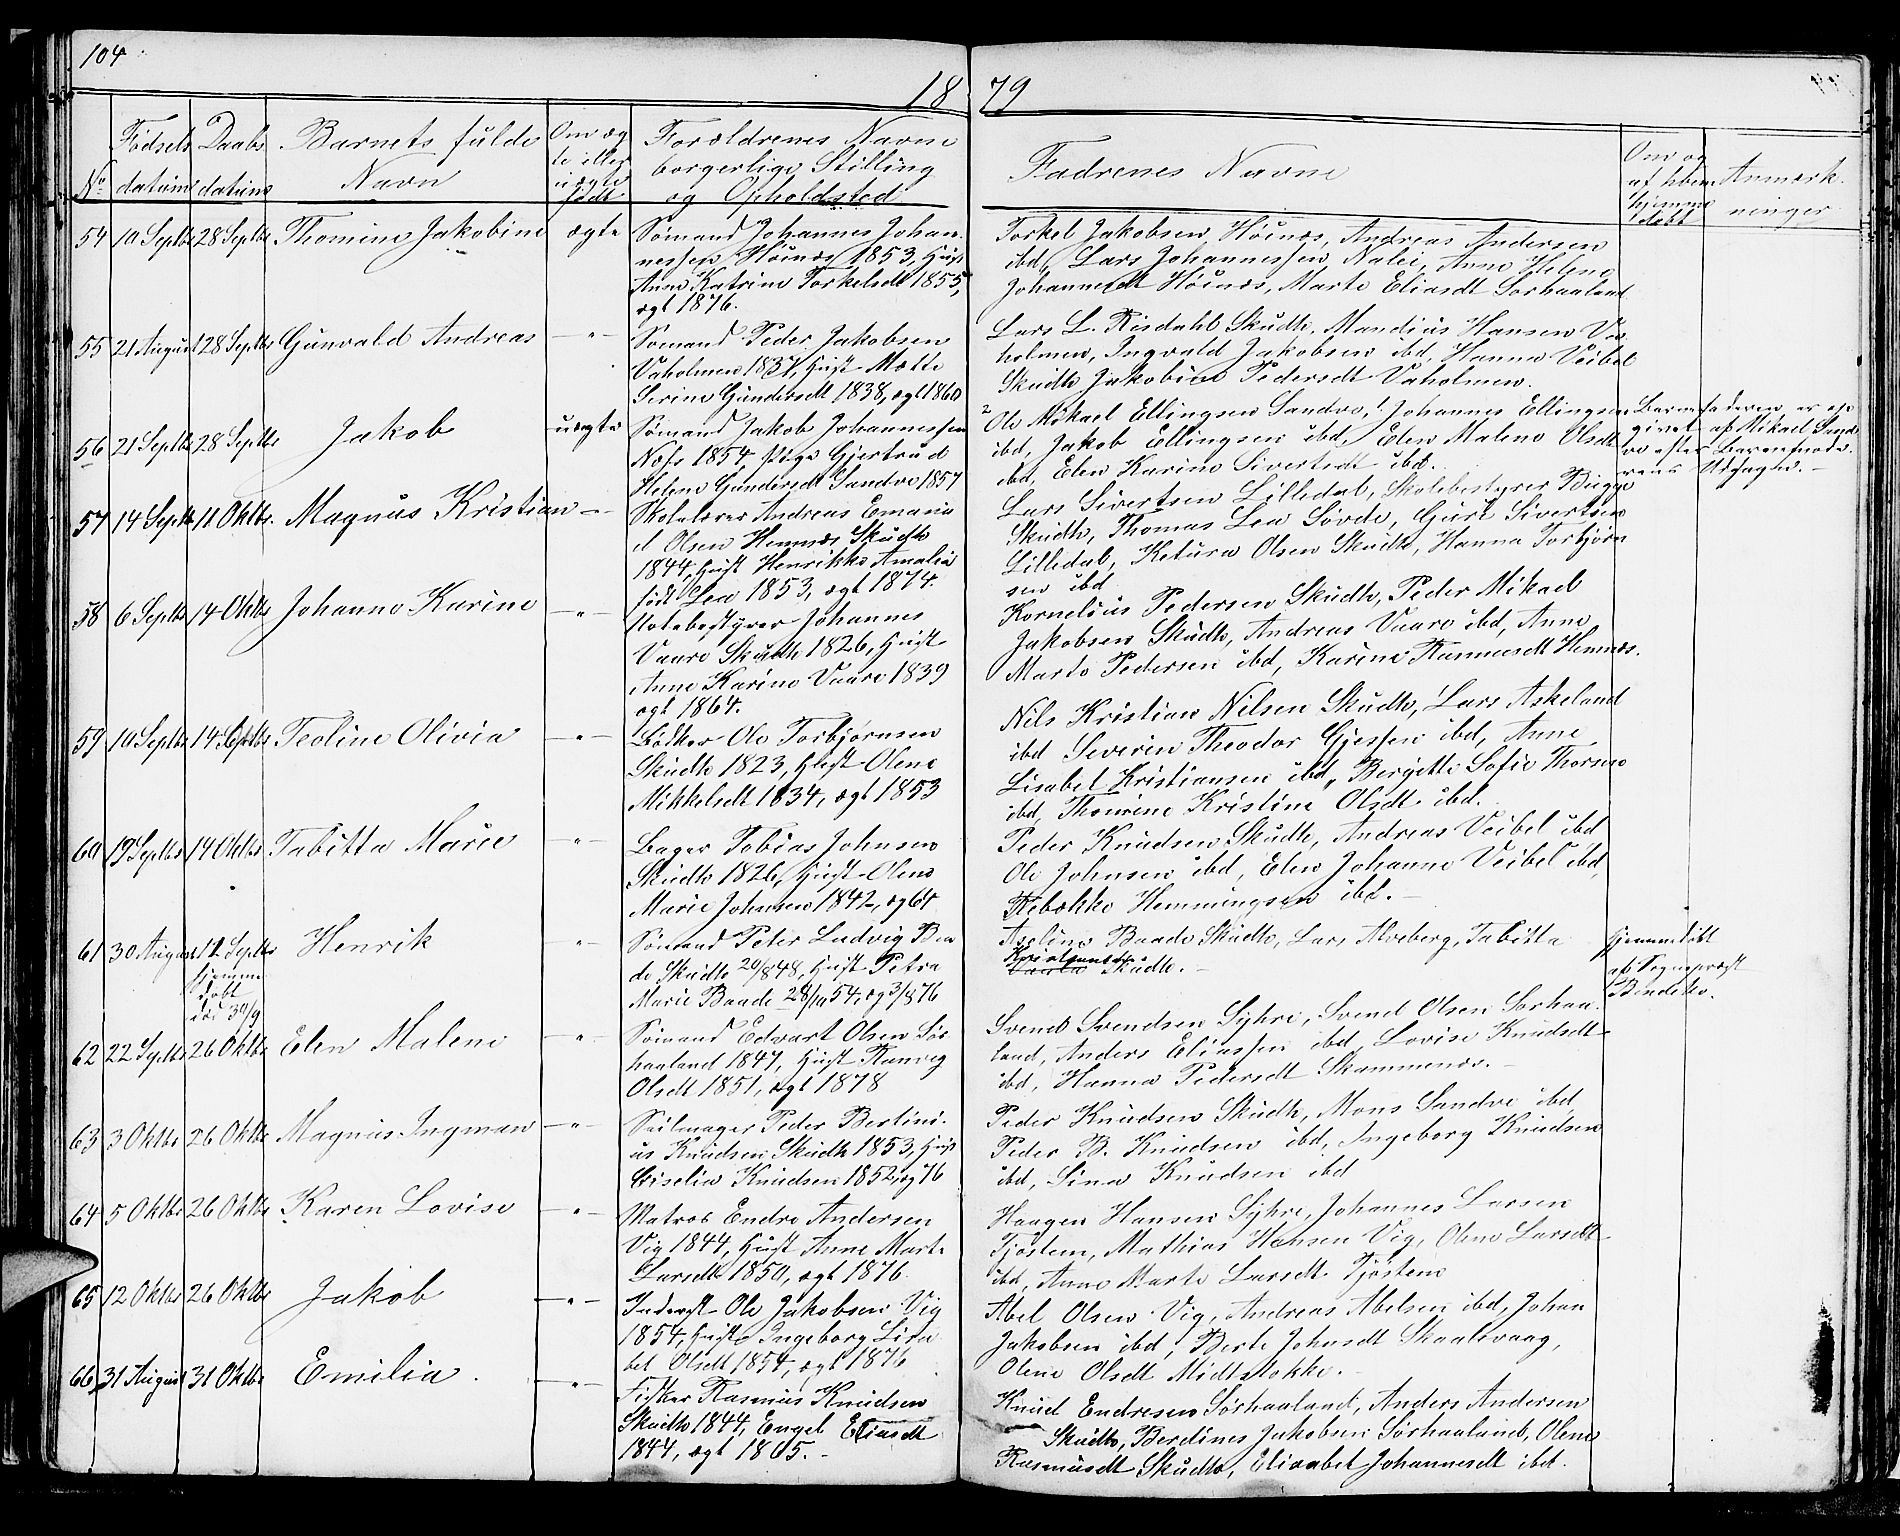 104
18 79
No
Fødsels
datum
Daabs
datum
Barnets fulde
Navn
Om æg
te eller
uægte
født
Forældrenes Navne
borgerlige Stilling
og Opholdssted
Fadrenes Navne
Om og
af hvem
hjemme
døbt
Anmærk
ninger
54 10 Septbr 28 Septbr Thomine Jakobine ægte
Sømand Johannes Johan
nessen Høinæs 1853, Hust
Anne Katrine Torkelsdt 1855,
ægt 1876.
Torkel Jakobsen Høinæs, Andreas Andersen
ibd, Lars Johannessen Nalei, Anne Helene
Johannesdt Høinæs, Marte Eliasdt Sørhaaland
55 21 August 28 Septbr Gunvald Andreas -"-
Sømand Peder Jakobsen
Vaholmen 1837, Hust Mætte
Serine Gundersdt 1838, ægt 1860
Lars L. Risdahl Skudh, Mandius Hansen Va
holmen, Ingvald Jakobsen ibd, Hanna Veibel
Skudh, Jakobine Pedersdt Vaholmen.
56 21 Septbr 28 Septbr Jakob uægte
Sømand Jakob Johannessen
Næs 1854 Pige Gjertrud
Helene Gundersdt Sandve 1857
2 Ole Mikael Ellingsen Sandve, 1 Johannes Ellingsen
ibd, Jakob Ellingsen ibd, Elen Malene Olsdt
ibd, Elen Karine Sivertsdt ibd.
Barnefaderen er op
givet af Mikael Sand
ve efter Barnemode
rens Udsagn.
57 14 Septbr 11 Oktbr. Magnus Kristian -"-
Skolelærer Andreas Emanu
el Olsen Hemnæs Skudh
1844, Hust Henrikke Amalia
født Lea 1853, ægt 1874.
Lars Sivertsen Lilledal, Skolebestyrer Bugge
Skudh, Thomas Lea Søvde, Guri Sivertsen
Lilledal, Ketura Olsen Skudh, Hanna Torbjørn
sen ibd
58 6 Septbr 14 Oktbr Johanne Karine -"-
Johannes
Vaare Skudh 1826, Hust
Anne Karine Vaare 1839
ægt 1864.
Kornelius Pedersen Skudh, Peder Mikael
Jakobsen Skudh, Andreas Vaare ibd, Anne
Marte Pedersen ibd, Karine Rasmusdt Hemnæs.
59 10 Septbr 14 Septbr Teoline Olivia -"-
Bødker Ole Torbjørnsen
Skudh 1823, Hust Olene
Mikkelsdt 1834, ægt 1853
Nils Kristian Nilsen Skudh, Lars Askeland
ibd Severin Theodor Gjessen ibd, Anne
Lisabet Kristiansen ibd, Bergitte Sofie Thorsen
ibd, Thomine Kristine Olsdt ibd.
60 19 Septbr 14 Oktbr Tabitta Marie -"-
Bager Tobias Johnsen
Skudh 1826, Hust Olene
Marie Johnsen 1842, æg 64
Peder Knudsen Skudh, Andreas Veibel ibd
Ole Johnsen ibd, Elen Johanne Veibel ibd,
Rebekke Hemmingsen ibd.
61 30 August 12 Septbr Henrik -"-
hjemme
døbt
død 30/9
Sømand Peter Ludvig Baa
de Skudh 20/8 48, Hust Petra
Marie Baade 28/10 54, æg 3/8 76
Aseline Baade Skudh, Lars Alveberg, Tabitta
Kristensen
Skudh.
hjemmedøbt
af Sogneprest
62 22 Septbr 26 Oktbr Elen Malene -"-
Sømand Edvart Olsen Sør
haaland 1847, Hust Ranveg
Olsdt 1851, ægt 1878
Svend Svendsen Syhre, Svend Olsen Sørhaa
land, Anders Eliassen ibd, Lovise Knudsdt
ibd, Hanna Pedersdt Skammenæs.
63 3 Oktbr 26 Oktbr Magnus Ingman -"-
Seilmager Peder Bertini
us Knudsen Skudh 1853, Hust
Giselia Knudsen 1852, æg 76
Peder Knudsen Skudh, Mons Sandve ibd,
Peder B. Knudsen ibd, Ingeborg Knudsen
ibd, Sina Knudsen ibd
64 5 Oktbr 26 Oktbr Karen Lovise -"-
Matros Endre Andersen
Vig 1844, Hust Anne Marte
Larsdt 1850, ægt 1876.
Haagen Hansen Syhre, Johannes Larsen
Tjøstem, Mathias Hansen Vig, Olene Larsdt
ibd, Anne Marte Larsdt Tjøstem
65 12 Oktbr 26 Oktbr Jakob -"-
Inderst Ole Jakobsen Vig
1854, Hust Ingeborg Lisa
bet Olsdt 1854, ægt 1876
Abel Olsen Vig, Andreas Abelsen ibd, Johan
Jakobsen ibd, Berte Johnsdt Skaalevaag,
Olene Olsdt Midtstokke.
66 31 August 31 Oktbr Emilia. -"-
Fisker Rasmus Knudsen
Skudh 1844, Engel Eliasdt
1844, ægt 1865.
Knud Endresen Sørhaaland, Anders Andersen
Skudh, Berdines Jakobsen Sørhaaland, Olene
Rasmusdt Skudh, Elisabet Johannesdt ibd.